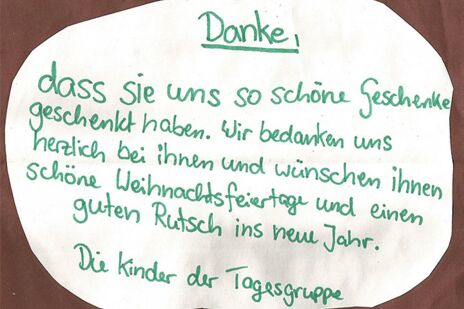 Danke,
dass sie uns so schöne Geschenke
geschenkt haben. Wir bedanken uns
herzlich bei ihnen und wünschen ihnen
schöne Weihnachtsfeiertage und einen
guten Rutsch ins neue Jahr.
Die Kinder der Tagesgruppe